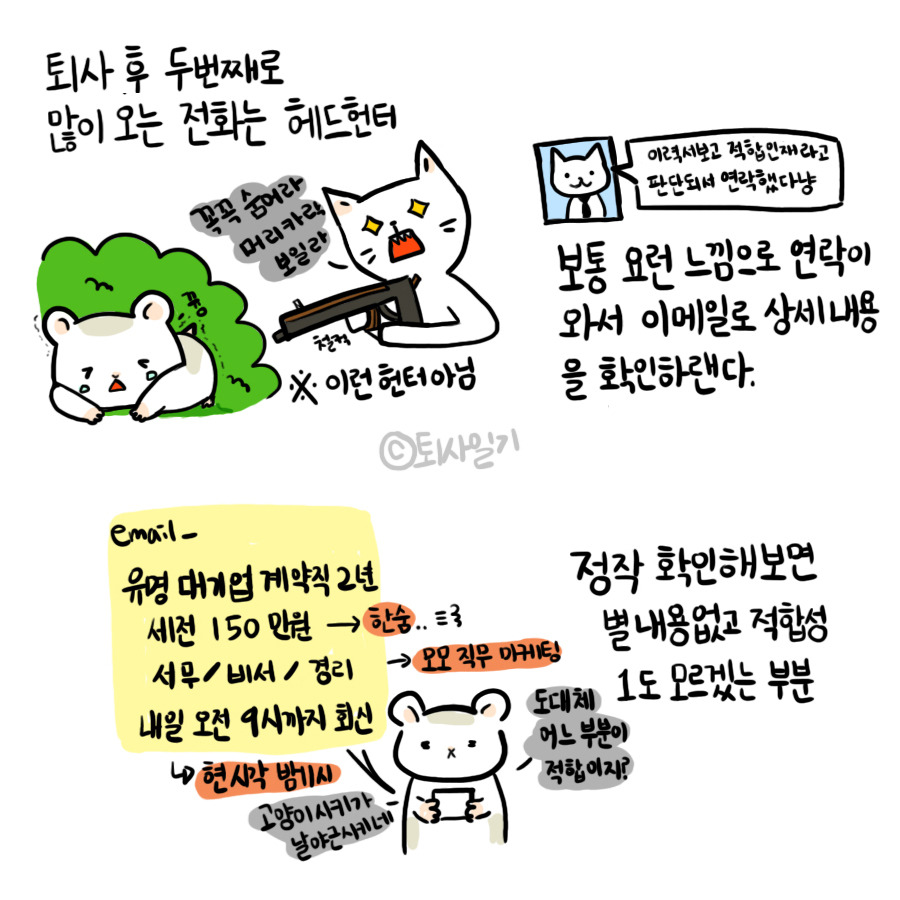 퇴사 후 두번째로
많이 오는 전화는 헤드헌터
꼭꼭 숨어라
머리카락
보일라
뀽
철컥
※ 이런 헌터아님
이력서보고 적합인재라고
판단되서 연락했다냥
보통 요런 느낌으로 연락이
와서 이메일로 상세내용
을 확인하랜다.
©퇴사일기
email_
유명 대기업 계약직 2년
세전 150 만원 → 한숨..
서무/비서/경리 → 모모 직무 마케팅
내일 오전 9시까지 회신
↳ 현시각 밤7시
고양이사키가
날야근시키네
정작 확인해보면
별내용없고 적합성
1도 모르겠는 부분
도대체
어느 부분이
적합이지?